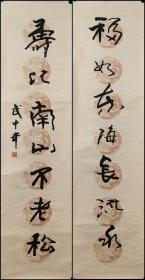 福如东海长流水
寿比南山不老松
武中奇